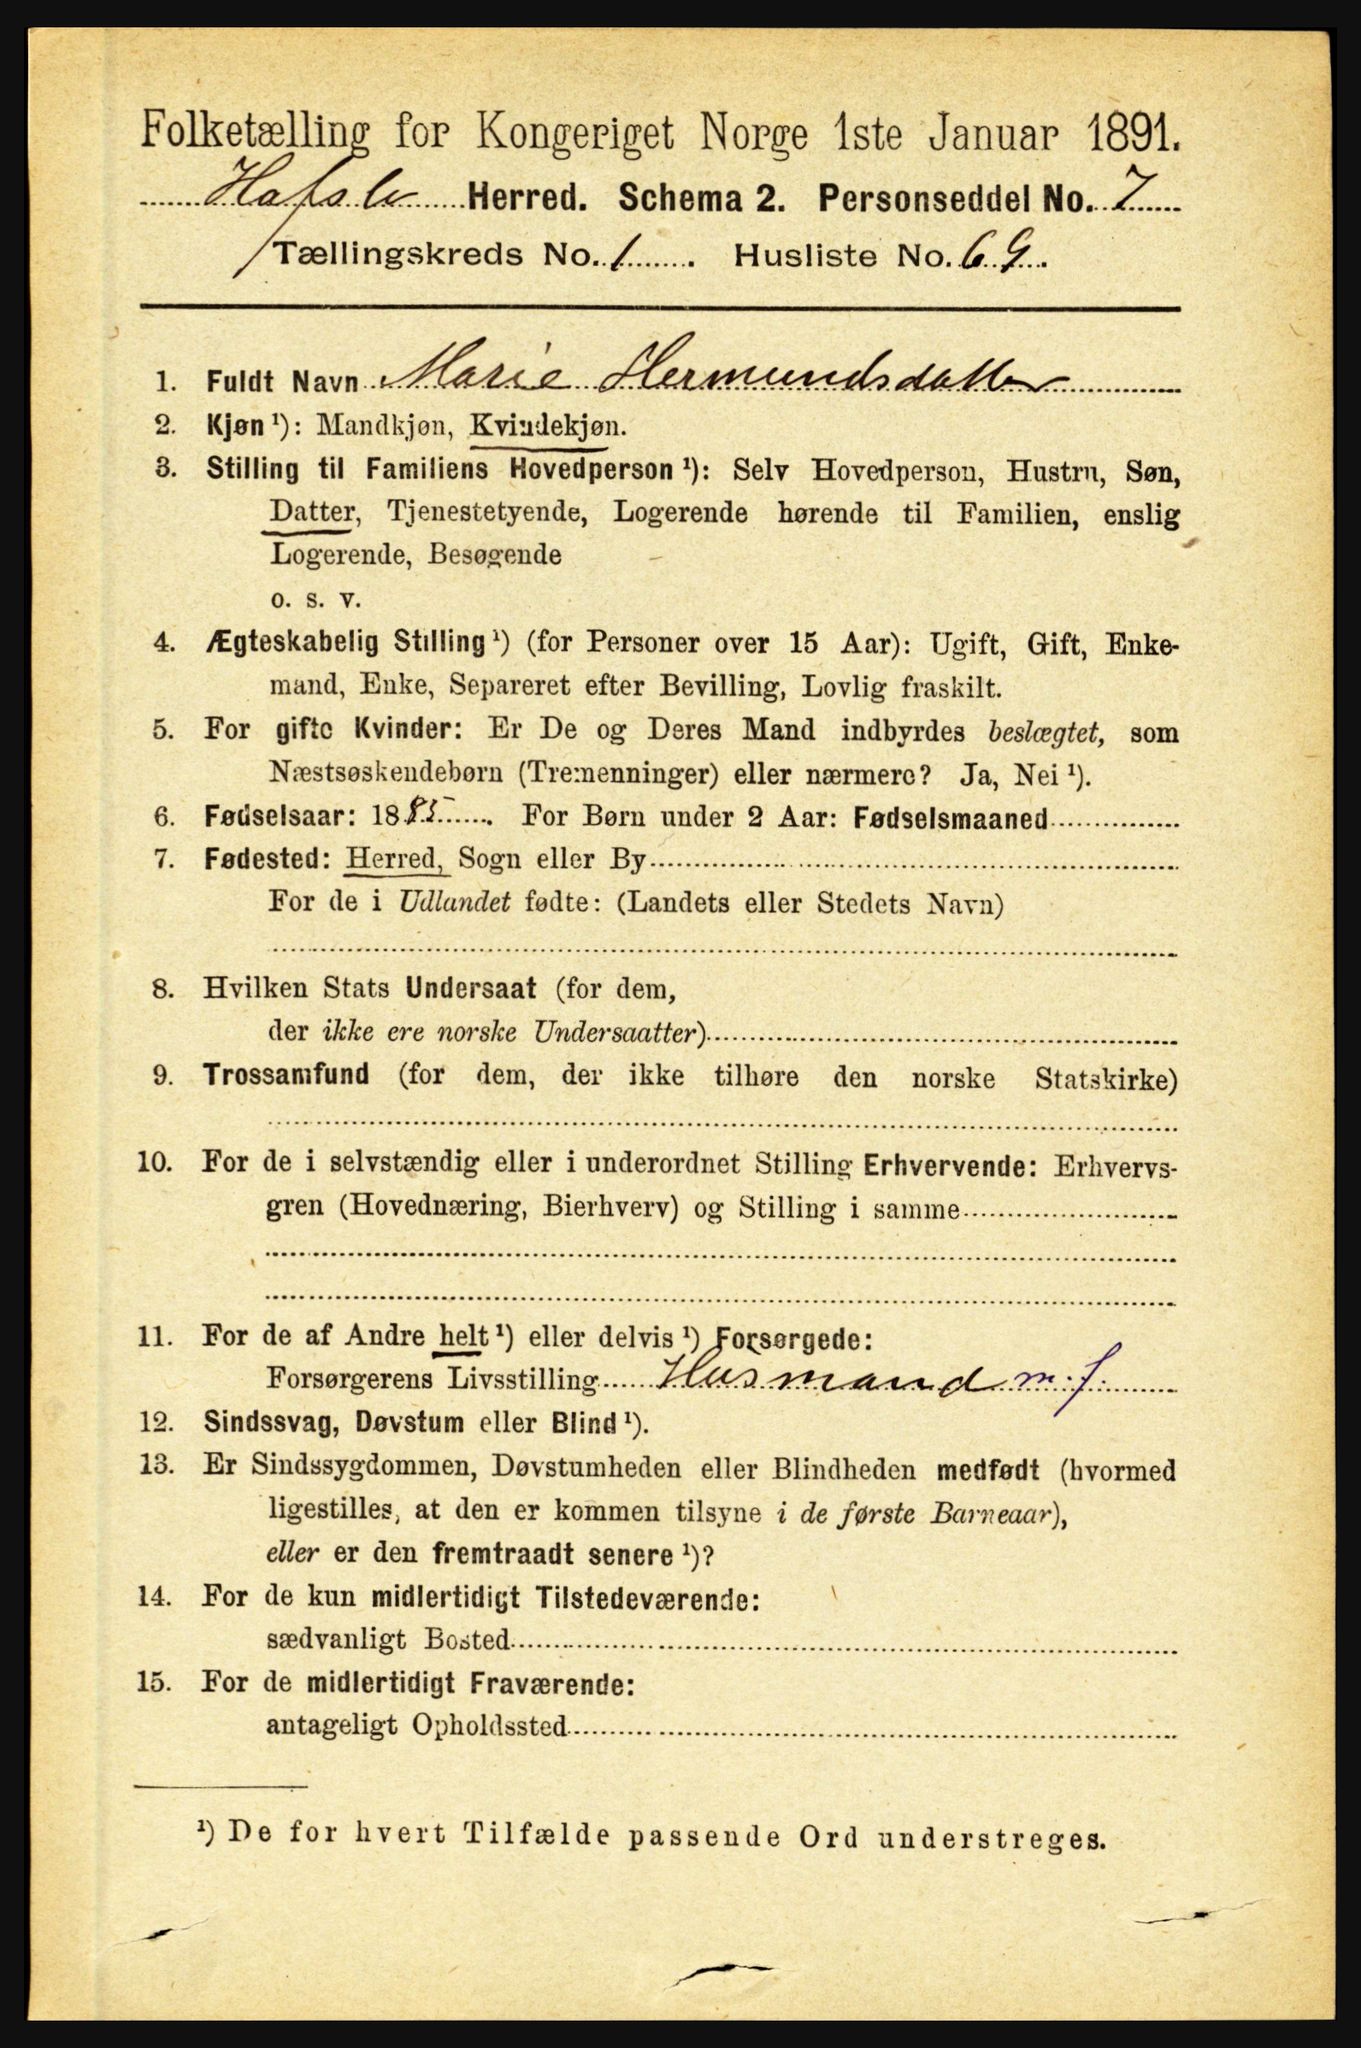 Folketælling for Kongeriget Norge 1ste Januar 1891.
Hafslo Herred. Schema 2. Personseddel No. 7
Tællingskreds No. 1. Husliste No. 69.
1. Fuldt Navn Marie Hermundsdatter
2. Kjøn ¹): Mandkjøn, Kvindekjøn.
3. Stilling til Familiens Hovedperson ¹): Selv Hovedperson, Hustru, Søn,
Datter, Tjenestetyende, Logerende hørende til Familien, enslig
Logerende, Besøgende
o. s. v.
4. Ægteskabelig Stilling ¹) (for Personer over 15 Aar): Ugift, Gift, Enke-
mand, Enke, Separeret efter Bevilling, Lovlig fraskilt.
5. For gifte Kvinder: Er De og Deres Mand indbyrdes beslægtet, som
Næstsøskendebørn (Tremenninger) eller nærmere? Ja, Nei ¹).
6. Fødselsaar: 1885. For Børn under 2 Aar: Fødselsmaaned
7. Fødested: Herred, Sogn eller By
For de i Udlandet fødte: (Landets eller Stedets Navn)
8. Hvilken Stats Undersaat (for dem,
der ikke ere norske Undersaatter)
9. Trossamfund (for dem, der ikke tilhøre den norske Statskirke)
10. For de i selvstændig eller i underordnet Stilling Erhvervende: Erhvervs-
gren (Hovednæring, Bierhverv) og Stilling i samme
11. For de af Andre helt ¹) eller delvis ¹) Forsørgede:
Forsørgerens Livsstilling Husmand m. j.
12. Sindssvag, Døvstum eller Blind ¹).
13. Er Sindssygdommen, Døvstumheden eller Blindheden medfødt (hvormed
ligestilles, at den er kommen tilsyne i de første Barneaar),
eller er den fremtraadt senere ¹)?
14. For de kun midlertidigt Tilstedeværende:
sædvanligt Bosted
15. For de midlertidigt Fraværende:
antageligt Opholdssted
¹) De for hvert Tilfælde passende Ord understreges.